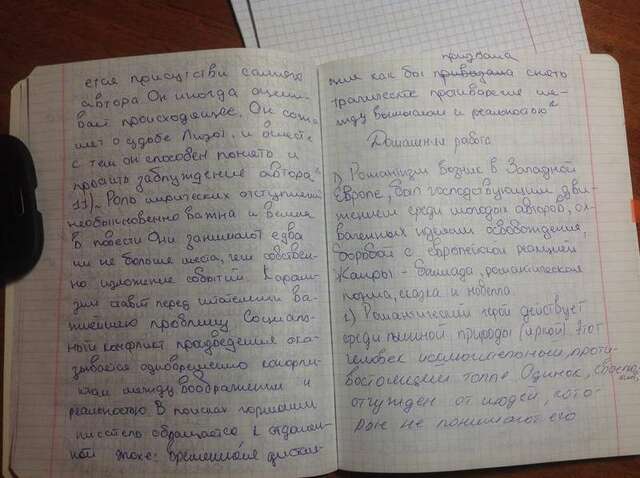 ется присутствие самого
автора Он иногда оцени-
вает происходящее. Он сожа
леет о судьбе Лизы, и вместе
с тем он способен понять и
простить заблуждение автора"
11) - Роль лирических отступлений
необыкновенно важна и велика
в повести Они занимают едва
ли не больше места, чем собствен-
но изложение событий Карам-
зин ставит перед читателями ва-
жнейшую проблему Социаль-
ный конфликт произведения ока-
зывается одновременно конфли-
ктом между воображением и
реальностью В поисках гармонии
писатель обращается к отдален-
ной эпохе: временная дистан-
призвана
ция как бы снять
трагическое противоречие ме-
жду вымыслом и реальностью"
Домашняя работа
1) Романтизм возник в Западной
Европе, был господствующим дви-
жением среди молодых авторов, ох-
ваченных идеями освобождения,
борьбой с европейской реакцией
Жанры - баллада, романтическая
поэма, сказка и новелла.
2) Романтический герой действует
среди пышной природы (яркой) Этот
человек исключительный, проти-
востоящий толпе Одинок,
отчужден от людей, кото-
рые не понимают его